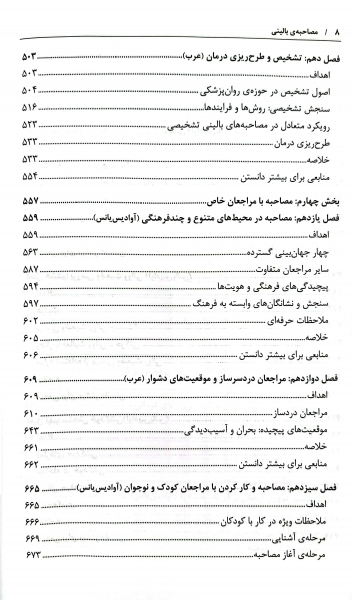 ۸ / مصاحبه‌ی بالینی
فصل دهم: تشخیص و طرح‌ریزی درمان (عرب) ۵۰۳
اهداف ۵۰۳
اصول تشخیص در حوزه‌ی روان‌پزشکی ۵۰۴
سنجش تشخیصی: روش‌ها و فرایندها ۵۱۶
رویکرد متعادل در مصاحبه‌های بالینی تشخیصی ۵۲۳
طرح‌ریزی درمان ۵۳۳
خلاصه ۵۳۳
منابعی برای بیشتر دانستن ۵۵۴
بخش چهارم: مصاحبه با مراجعان خاص ۵۵۷
فصل یازدهم: مصاحبه در محیط‌های متنوع و چندفرهنگی (آوادیس‌یانس) ۵۵۹
اهداف ۵۵۹
چهار جهان‌بینی گسترده ۵۶۳
سایر مراجعان متفاوت ۵۸۷
پیچیدگی‌های فرهنگی و هویت‌ها ۵۹۴
سنجش و نشانگان‌های وابسته به فرهنگ ۵۹۷
ملاحظات حرفه‌ای ۶۰۲
خلاصه ۶۰۵
منابعی برای بیشتر دانستن ۶۰۶
فصل دوازدهم: مراجعان دردسرساز و موقعیت‌های دشوار (عرب) ۶۰۹
اهداف ۶۰۹
مراجعان دردساز ۶۱۰
موقعیت‌های پیچیده: بحران و آسیب‌دیدگی ۶۴۳
خلاصه ۶۶۱
منابعی برای بیشتر دانستن ۶۶۲
فصل سیزدهم: مصاحبه و کار کردن با مراجعان کودک و نوجوان (آوادیس‌یانس) ۶۶۵
اهداف ۶۶۵
ملاحظات ویژه در کار با کودکان ۶۶۶
مرحله‌ی آشنایی ۶۶۹
مرحله‌ی آغاز مصاحبه ۶۷۳